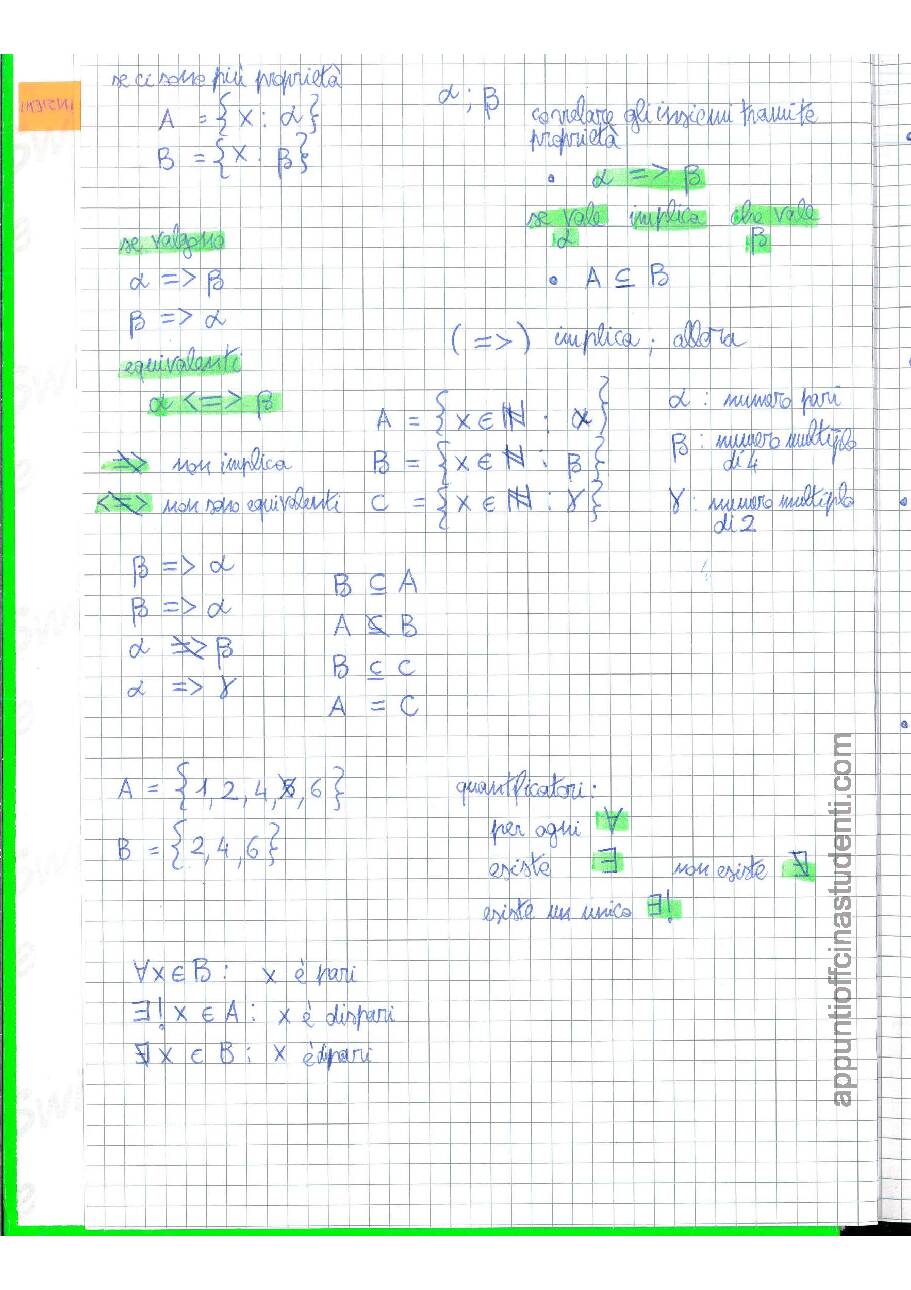 INSIEMI
se ci sono più proprietà
A = {x : α}
B = {x : β}
α ; β
correlare gli insiemi tramite
proprietà
• α => β
se vale implica che vale
α β
• A ⊆ B
se valgono
α => β
β => α
equivalenti
α <=> β
(=>) implica ; allora
≠> non implica
<≠> non sono equivalenti
A = {x ∈ ℕ : α}
B = {x ∈ ℕ : β}
C = {x ∈ ℕ : γ}
α : numero pari
β : numero multiplo
di 4
γ : numero multiplo
di 2
β => α
β => α
α ≠> β
α => γ
B ⊆ A
A ⊈ B
B ⊆ C
A = C
A = {1, 2, 4, 6}
B = {2, 4, 6}
quantificatori :
per ogni ∀
esiste ∃ non esiste ∄
esiste un unico ∃!
∀x ∈ B : x è pari
∃! x ∈ A : x è dispari
∄ x ∈ B : x è dipari
appuntioffcinastudenti.com